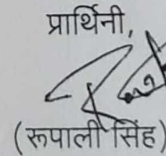 प्रार्थिनी,
(रूपाली सिंह)